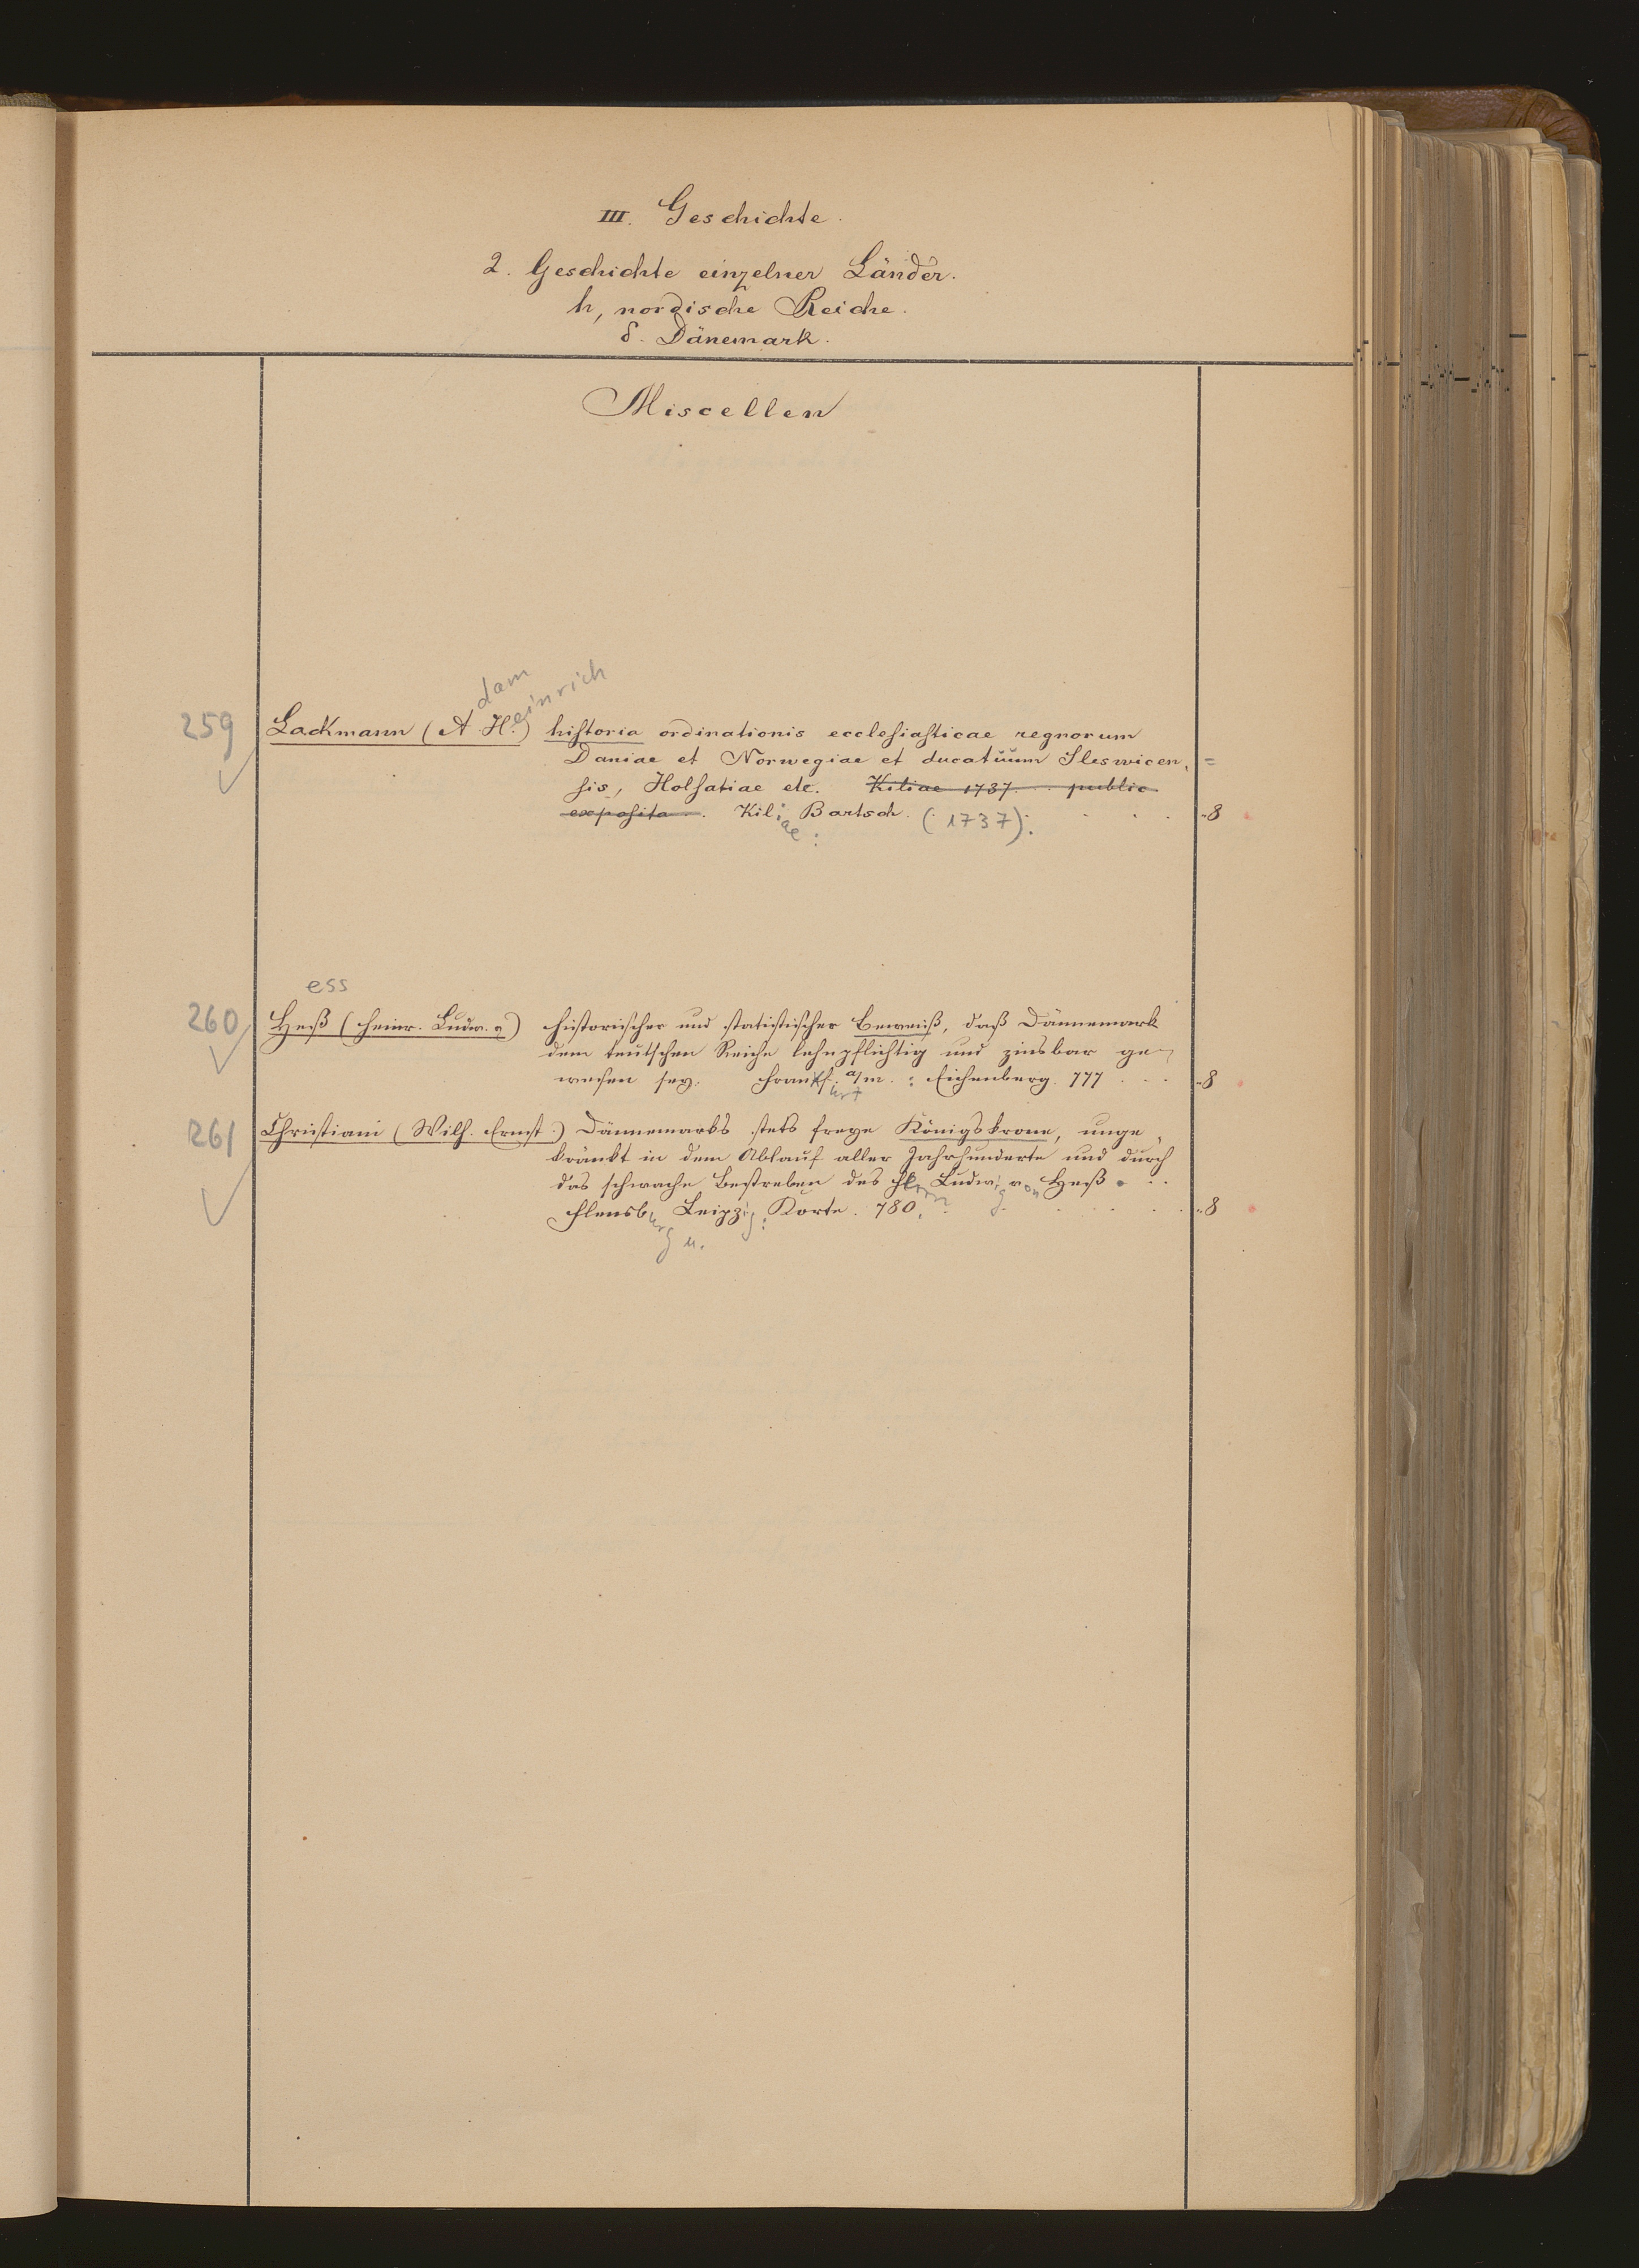 III. Geschichte.
2. Geschichte einzelner Länder.
h, nordische Reiche.
δ. Dänemark.
Miscellen
dam einrich
259 Lackmann (A. H.) historia ordinationis ecclesiasticae regnorum
Daniae et Norwegiae et ducatuum Sleswicen-
sis, Holsatiae etc. Kiliae 1737. public
exposita. Kiliae: Bartsch. (1737). -8
ess
260 Heß (Heinr. Ludw. v) historischer und statistischer Beweiß, daß Dännemark
dem teutschen Reiche lehnpflichtig und zinsbar ge-
wesen sey. Frankfurt a/m.: Eichenberg. 777 -8
261 Christiani (Wilh. Ernst.) Dännemarks stets freye Königskrone, unge
kränkt in dem Ablauf aller Jahrhunderte und durch
das schwache Bestreben des Herrn Ludwig von Heß.
Flensburg u. Leipzig: Korte. 780. -8